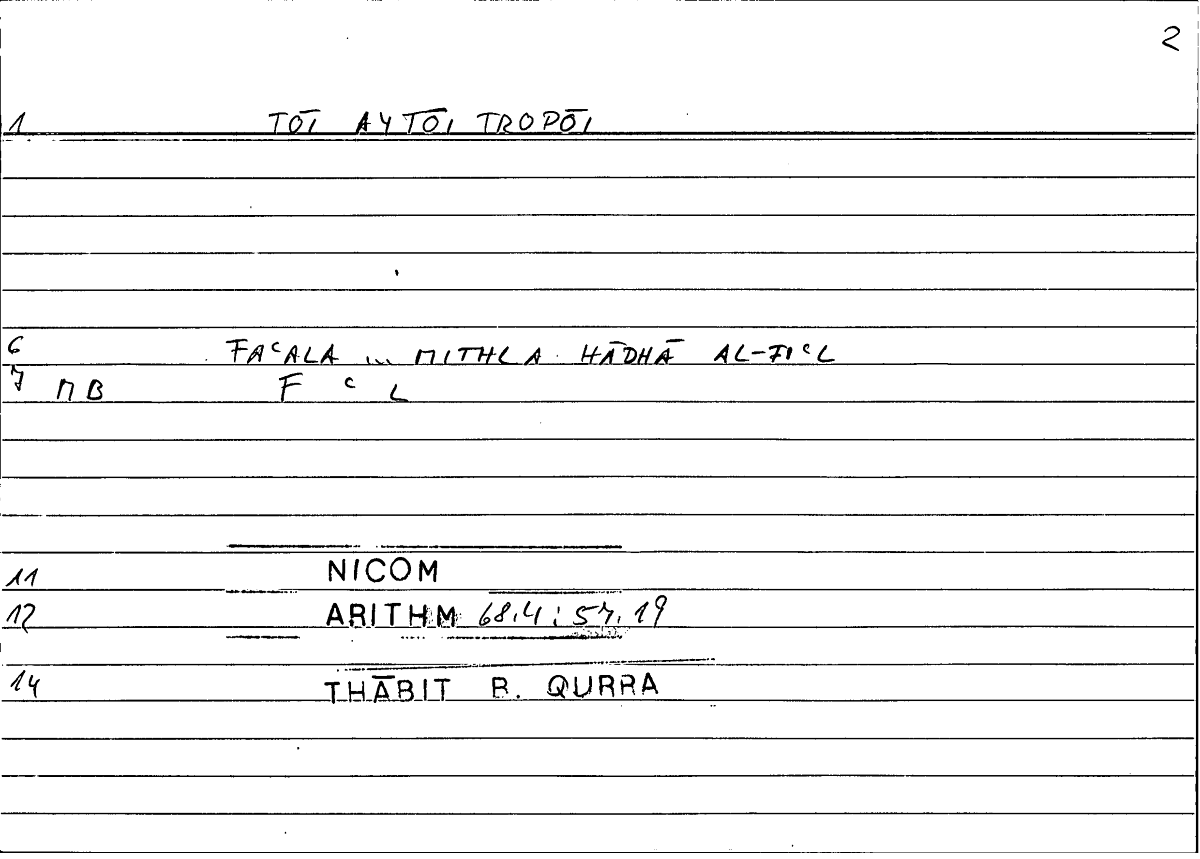 2
1 TŌI AYTŌI TROPŌI
6 FAᶜALA ... MITHLA HĀDHĀ AL-FIᶜL
7 MB F ᶜ L
11 NICOM
12 ARITHM 68.4 : 57.19
14 THĀBIT B. QURRA